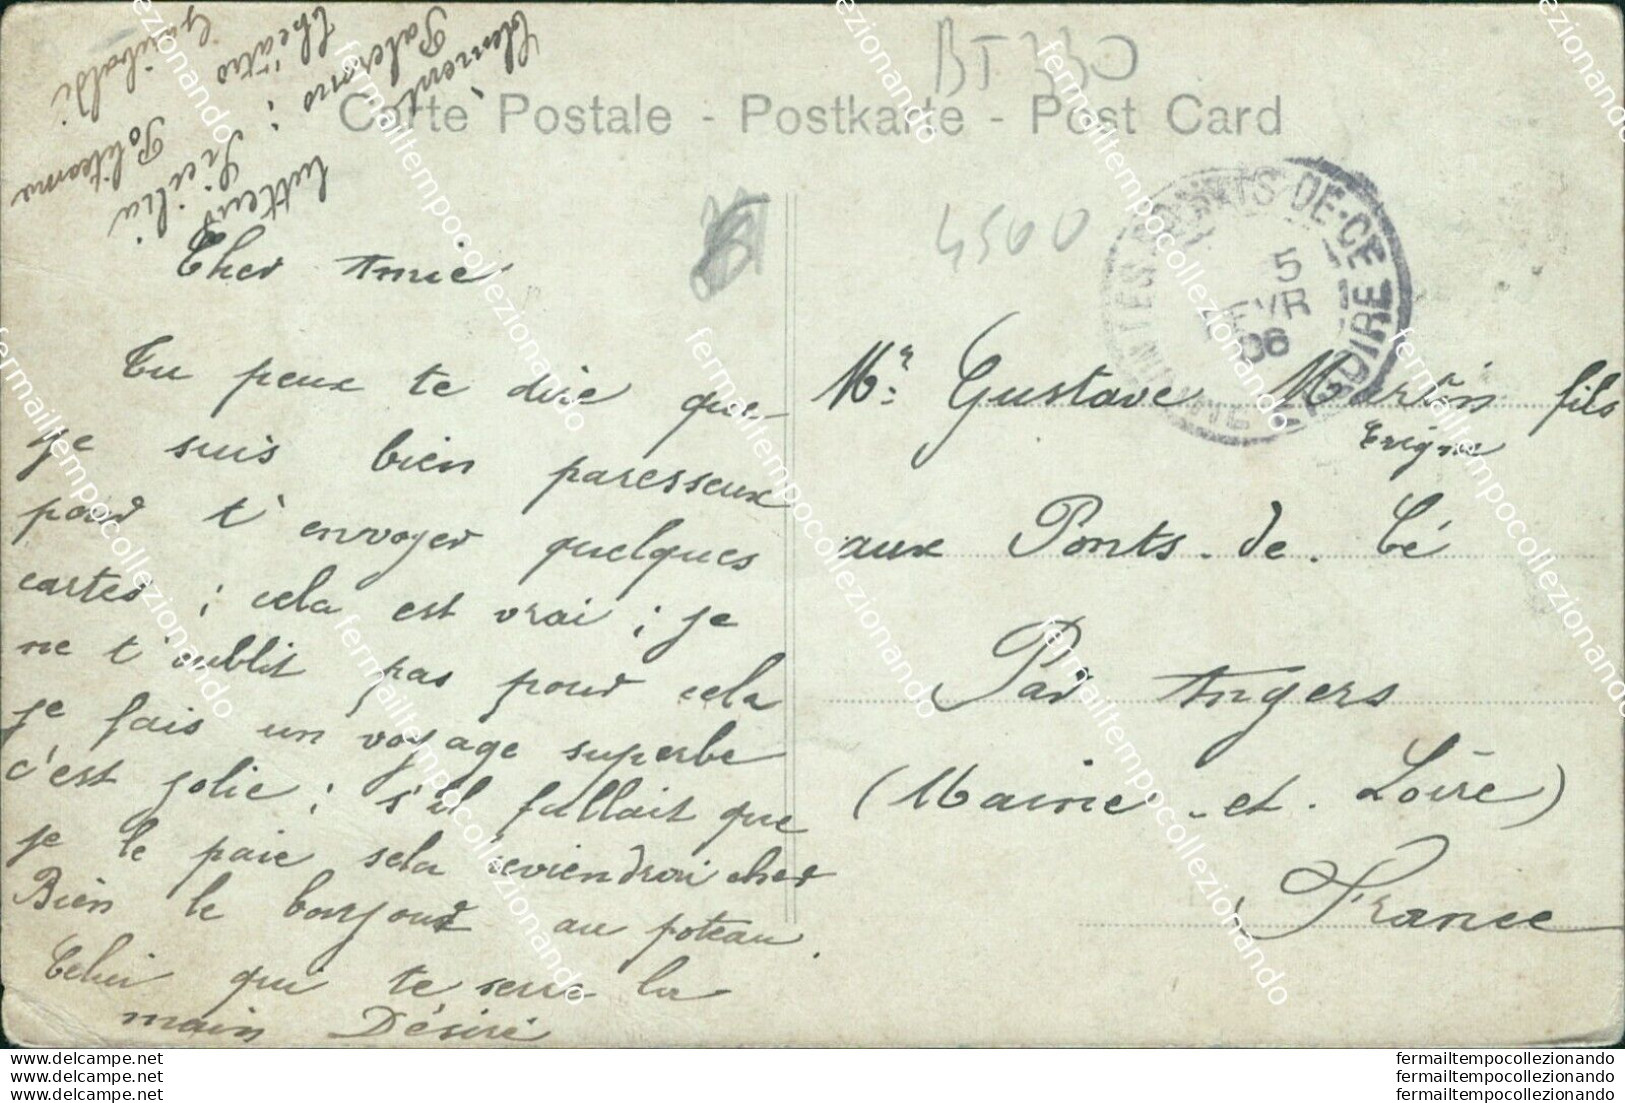 Clement
Palermo :
Théâtre
Garibaldi
lutteur
Sicilia
Politeama
BT 330
Carte Postale - Postkarte - Post Card
4500
PONTS-DE-CE
5
EVR
06
Cher Amie
Tu peux te dire que
je suis bien paresseux
pour t'envoyer quelques
cartes ; cela est vrai ; je
ne t'oublit pas pour cela
je fais un voyage superbe
c'est jolie ; s'il fallait que
je le paie sela reviendrai cher
Bien le bonjour au poteau.
Celui qui te serre la
main Désiré
Mr: Gustave Martin fils
Erigné
aux Ponts-de-Cé
Par Angers
(Maine-et-Loire)
France
www.delcampe.net
www.delcampe.net
www.delcampe.net
fermailtempocollezionando
fermailtempocollezionando
fermailtempocollezionando